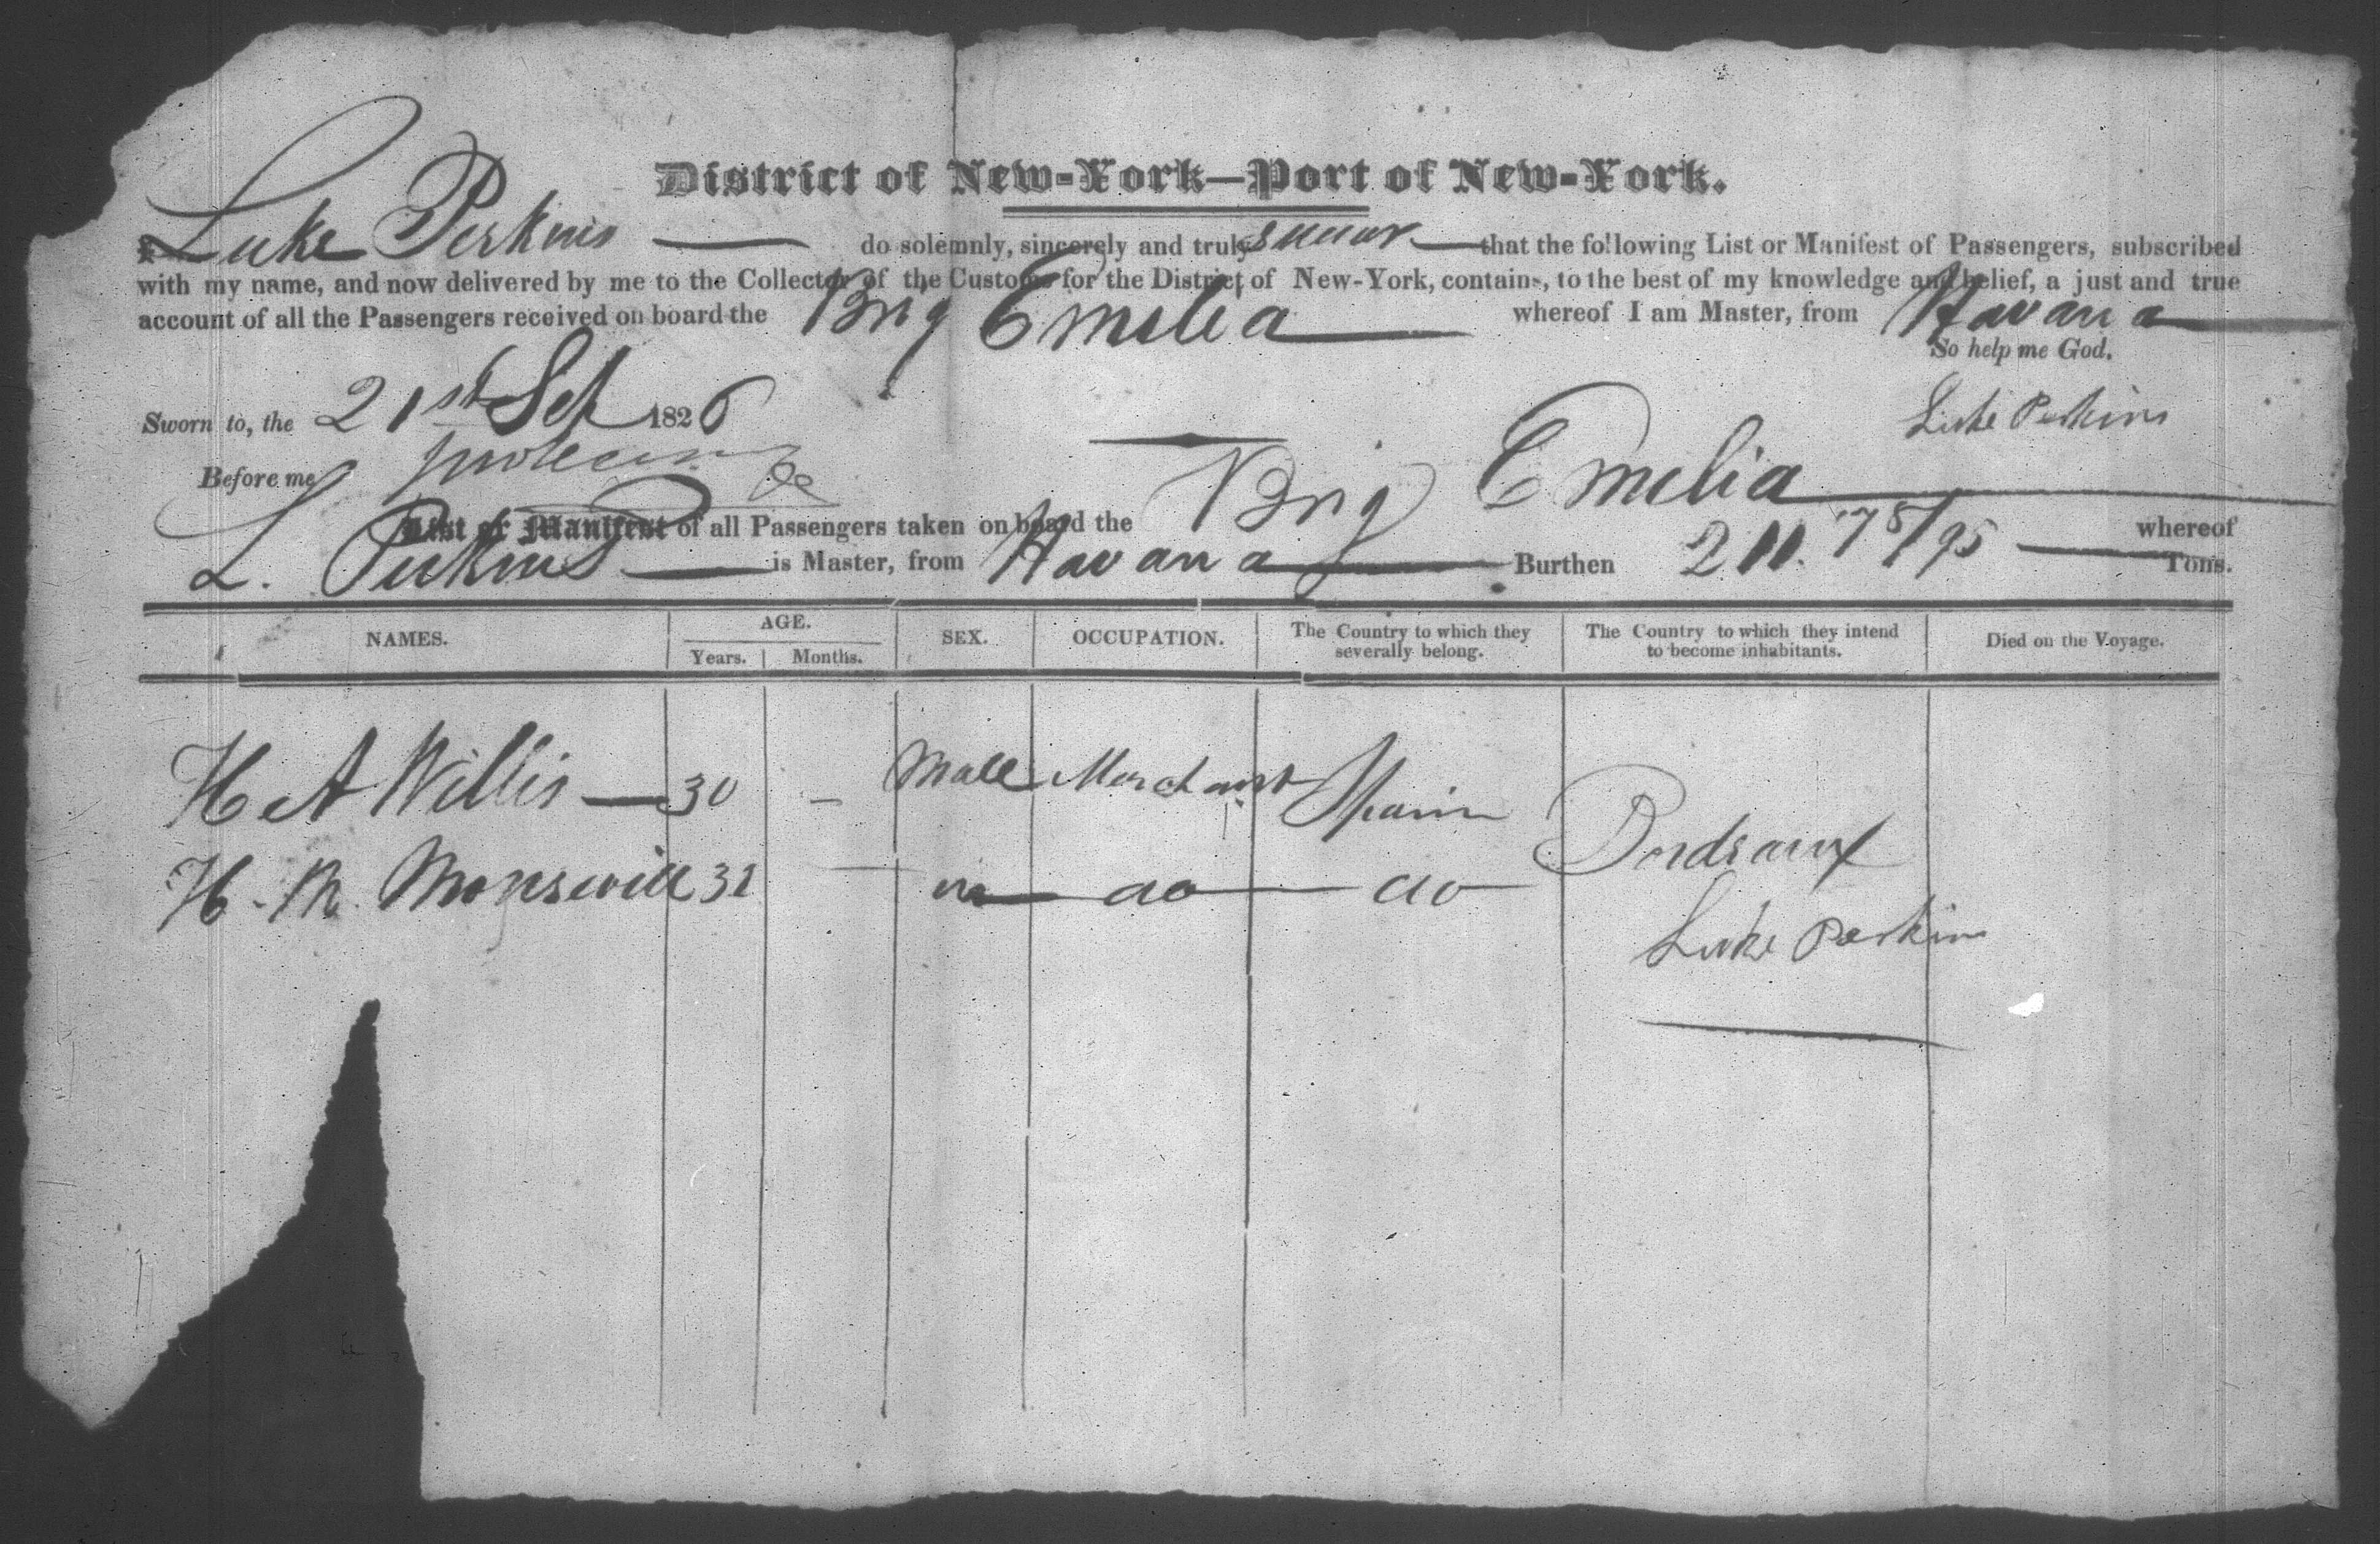 District of New-York—Port of New-York.
I Luke Perkins do solemnly, sincerely and truly swear that the following List or Manifest of Passengers, subscribed
with my name, and now delivered by me to the Collector of the Customs for the District of New-York, contains, to the best of my knowledge and belief, a just and true
account of all the Passengers received on board the Brig Emelia whereof I am Master, from Havana
So help me God.
Sworn to, the 21st Sep 1826
Luke Perkins
Before me
List or Manifest of all Passengers taken on board the Brig Emelia whereof
L. Perkins is Master, from Havana Burthen 211. 78/95 Tons.
NAMES. AGE. Years. Months. SEX. OCCUPATION. The Country to which they severally belong. The Country to which they intend to become inhabitants. Died on the Voyage.
H A Willis — 30 - Male Merchant Spain
H. M. 32 — do do Bordeaux
Luke Perkins